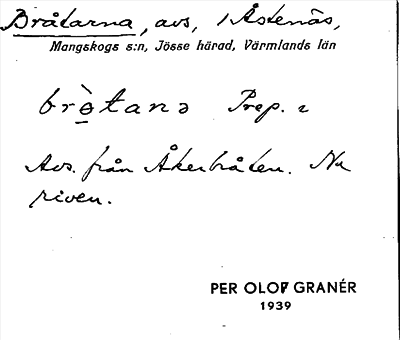 Bråtarna, avs, 1 Åstenäs,
Mangskogs s:n, Jösse härad, Värmlands län
brò̤tanə Prep. 2
Avs. från Åkerbråten. Nu
riven.
PER OLOF GRANÉR
1939